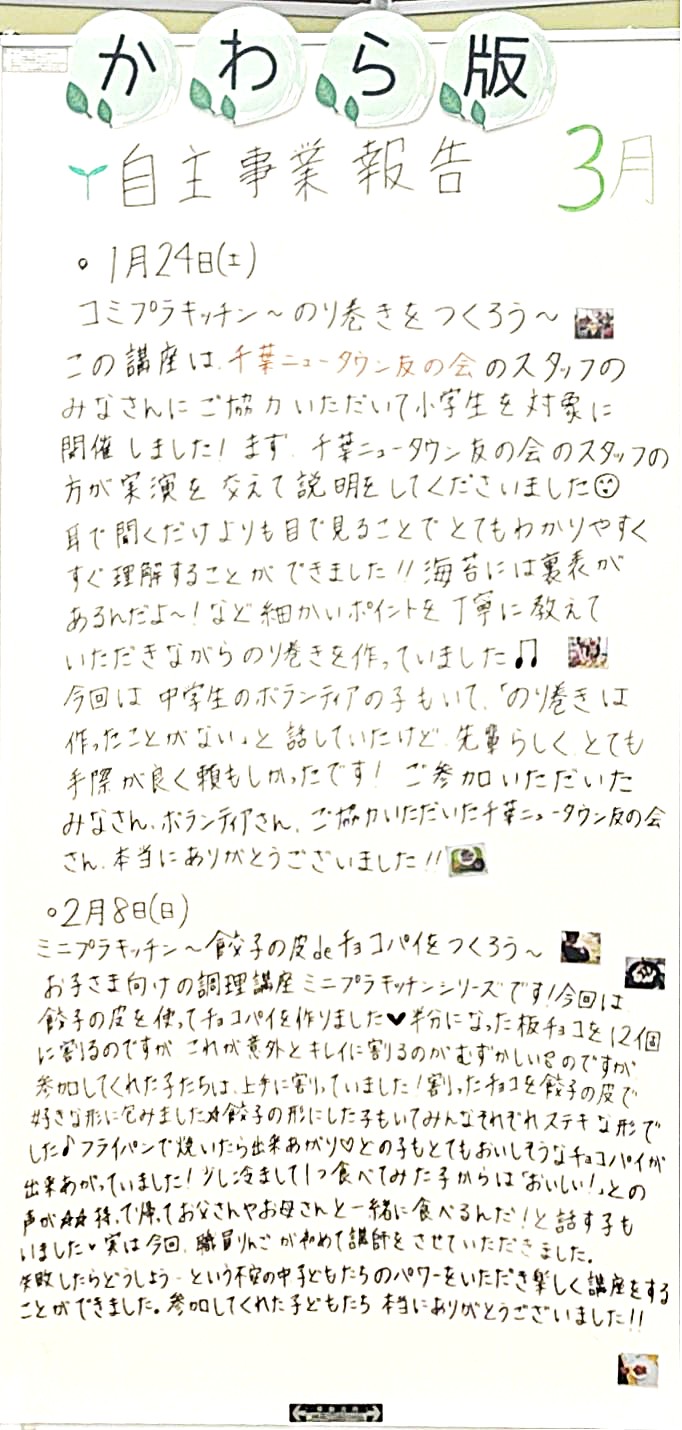 かわら版
自主事業報告 3月
。1月24日(土)
コミプラキッチン～のり巻きをつくろう～
この講座は、千葉ニュータウン友の会のスタッフの
みなさんにご協力いただいて小学生を対象に
開催しました!まず、千葉ニュータウン友の会のスタッフの
方が実演を交えて説明をしてくださいました
耳で聞くだけよりも目で見ることでとてもわかりやすく
すぐ理解することができました!!海苔には裏表が
あるんだよ～!など細かいポイントを丁寧に教えて
いただきながらのり巻きを作っていました♫
今回は中学生のボランティアの子もいて、「のり巻きは
作ったことがない」と話していたけど、先輩らしく、とても
手際が良く頼もしかったです!ご参加いただいた
みなさん、ボランティアさん、ご協力いただいた千葉ニュータウン友の会
さん、本当にありがとうございました!!
。2月8日(日)
ミニプラキッチン～餃子の皮deチョコパイをつくろう～
お子さま向けの調理講座ミニプラキッチンシリーズです!今回は
餃子の皮を使ってチョコパイを作りました♥半分になった板チョコを12個
に割るのですが これが意外とキレイに割るのがむずかしい のですが
参加してくれた子たちは、上手に割っていました!割ったチョコを餃子の皮で
好きな形に包みました☆餃子の形にした子もいてみんなそれぞれステキな形で
した♪フライパンで焼いたら出来あがり♡どの子もとてもおいしそうなチョコパイが
出来あがっていました!少し冷まして1つ食べてみた子からは「おいしい!」との
声が☆☆持って帰ってお父さんやお母さんと一緒に食べるんだ!と話す子も
いました♥実は今回、職員りんごが初めて講師をさせていただきました。
失敗したらどうしよう…という不安の中子どもたちのパワーをいただき楽しく講座をする
ことができました。参加してくれた子どもたち 本当にありがとうございました!!